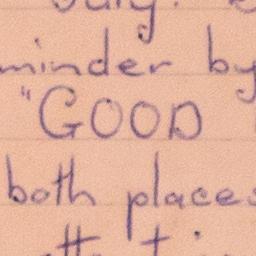 July.
minder by
"GOOD
both places